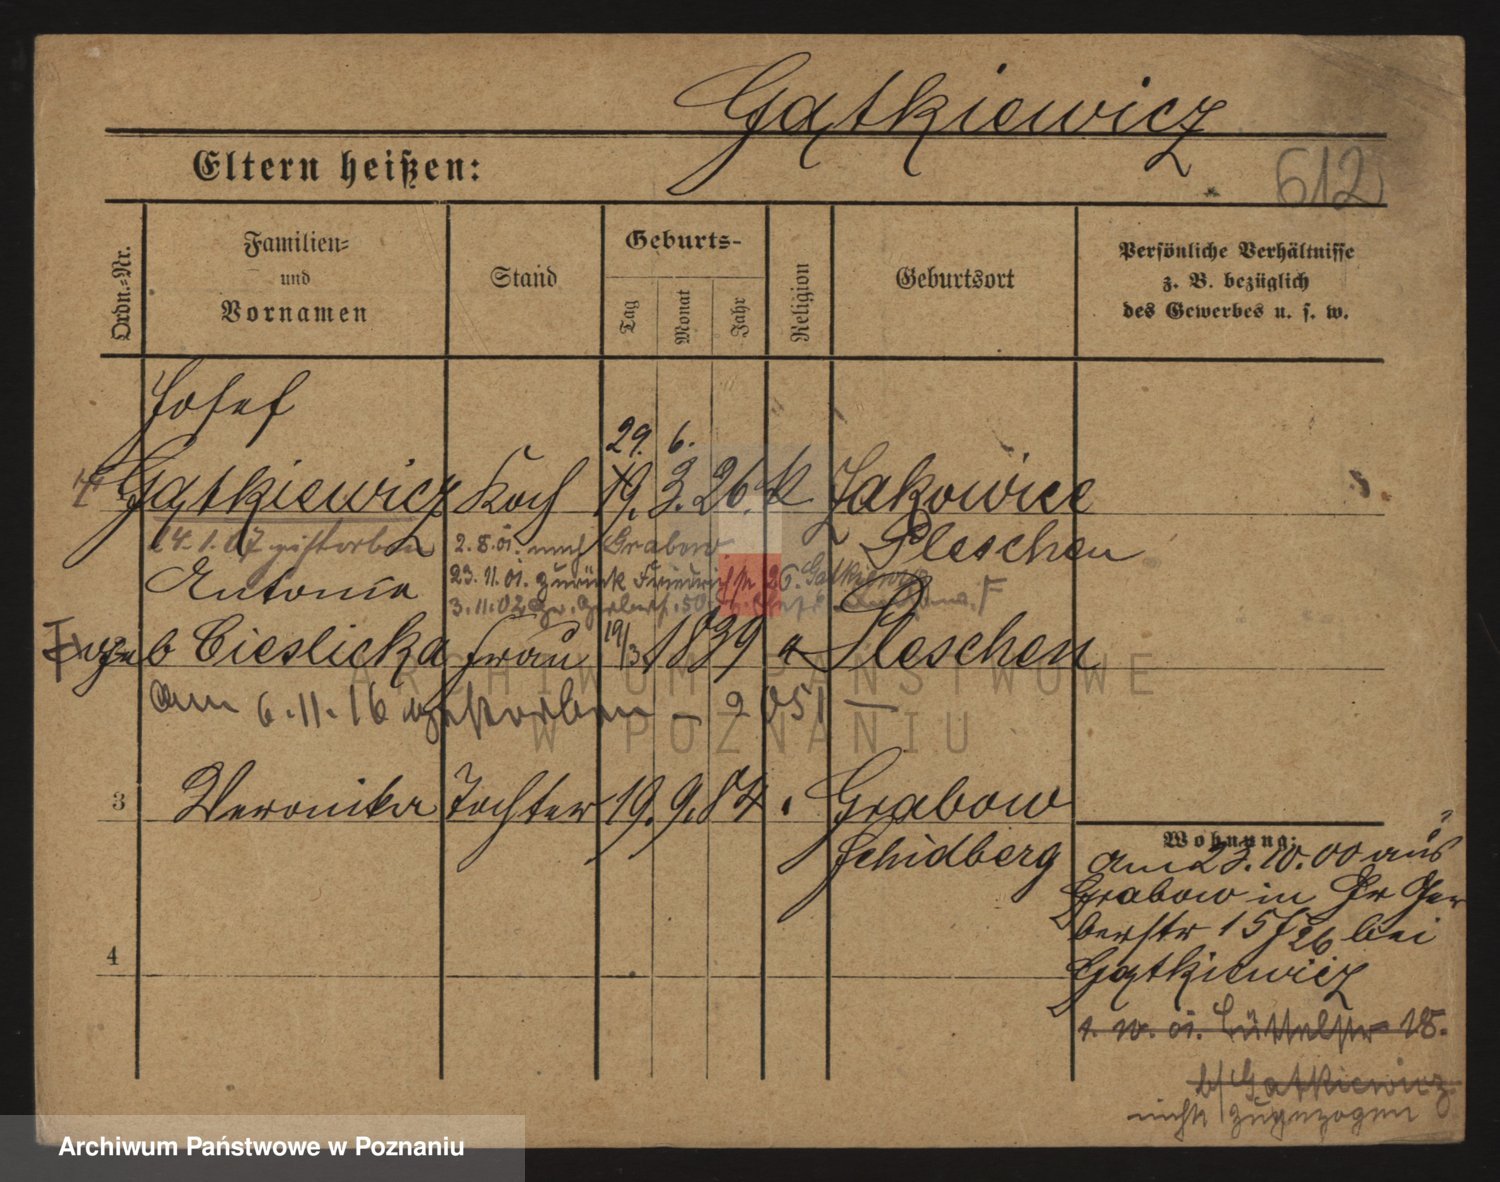 Gątkiewicz
Eltern heißen:
612
Ordn.-Nr.
Familien-
und
Vornamen
Stand
Geburts-
Tag
Monat
Jahr
Religion
Geburtsort
Persönliche Verhältnisse
z. B. bezüglich
des Gewerbes u. s. w.
Josef
29. 6.
Gątkiewicz Koch 19. 3. 26. k Żakowice
14. 1. 07 gestorben 2. 8. 01. nach Grabow Pleschen
Antonia 23. 11. 01. zurück Friedrichstr 26. Gątkiewicz
3. 11. 02 Gr. Gerberst. 50
geb Cieslicka Frau 19/3 1839 " Pleschen
am 6. 11. 16 gestorben – 2051 –
ARCHIWUM PAŃSTWOWE
W POZNANIU
3 Veronika Tochter 19. 9. 84. Grabow
Schidberg
Wohnung:
am 23. 10. 00 aus
Grabow in Gr Ger
berstr 15/26 bei
Gątkiewicz
4
1. 10. 01. Büttelstr 18.
b/ Gatkiewicz
nicht zugezogen
Archiwum Państwowe w Poznaniu